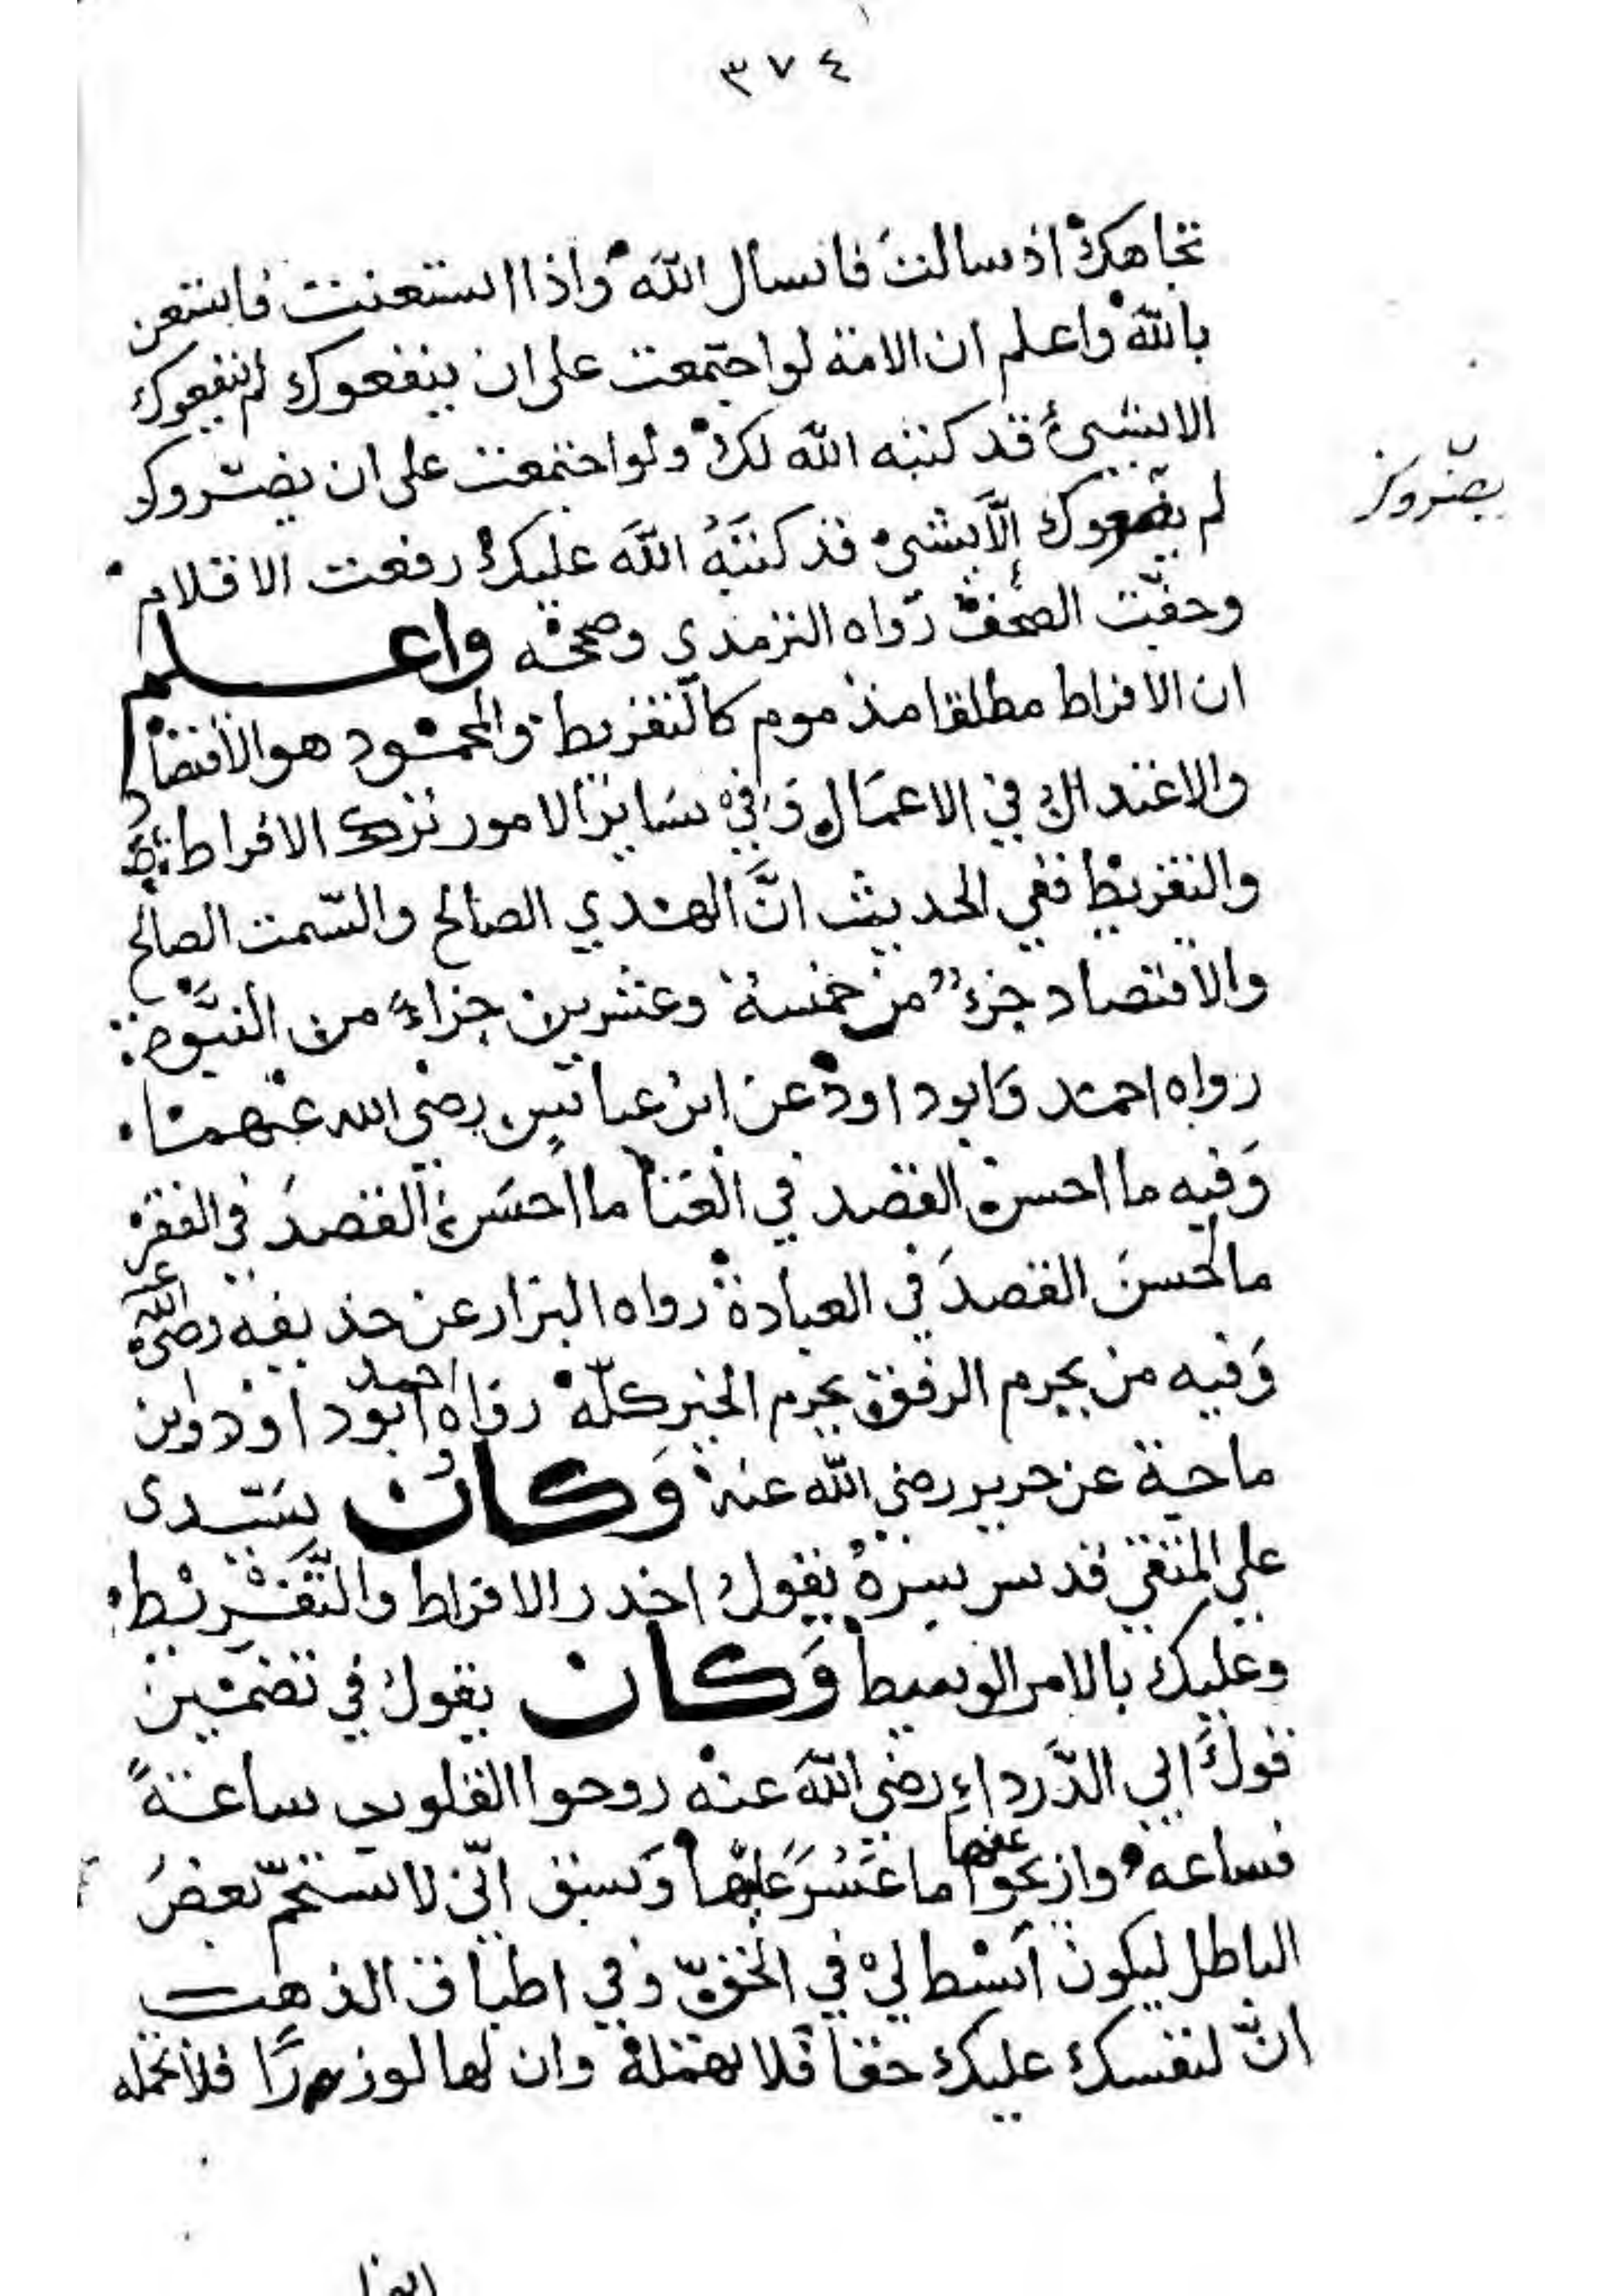 ٣٧٤
تجاهك اذ سالت فاسال الله واذا استعنت فاستعن
بالله واعلم ان الامة لو اجتمعت على ان ينفعوك لم ينفعوك
الا بشيئ قد كتبه الله لك ولو اجتمعت على ان يضروك
يضروك
لم إلّا بشئ قد كتبَهُ اللّه عليك رفعت الاقلام
وجفت الصحف رواه الترمذي وصححه واعلم
ان الافراط مطلقا مذموم كالتفريط والمحمود هو الاقتصاد
والاعتدال في الاعمال وَفي سَاير الامور ترك الافراط
والتفريط ففي الحديث انَّ الهدي الصالح والسّمت الصالح
والاقتصاد جزء من خمسة وعشرين جزاءً من النبوّة
رواه احمد وَابوداود عن ابن عباس رضي الله عنهما
وَفيه ما احسن القصد في الغنا ما احسَن القصدَ في الفقر
ما احسنَ القصدَ في العبادة رواه البزار عن حذيفة رضي الله عنه
وَفيه من يحرم الرفق يحرم الخير كلّه رواه احمد وابوداود وابن
ماجة عن جرير رضي الله عنه وَكان سيّدى
علي المتقي قدس سره يقول احذر الافراط والتَّفْريْط
وعليك بالامر الوسيط وَكان يقول في تضمين
قول ابي الدَّرداءِ رضي اللّه عنه روحوا القلوب ساعةً
فساعه وازيحوا عنها ما عَسُرَ عليها وَسبق انّي لاستجمّ بعضَ
الباطل ليكون انشط لي في الحقّ وفي اطباق الذهب
انّ لنفسك عليك حقا فلا تهمله وان لها لوزرًا فلا تحمله
ايضا